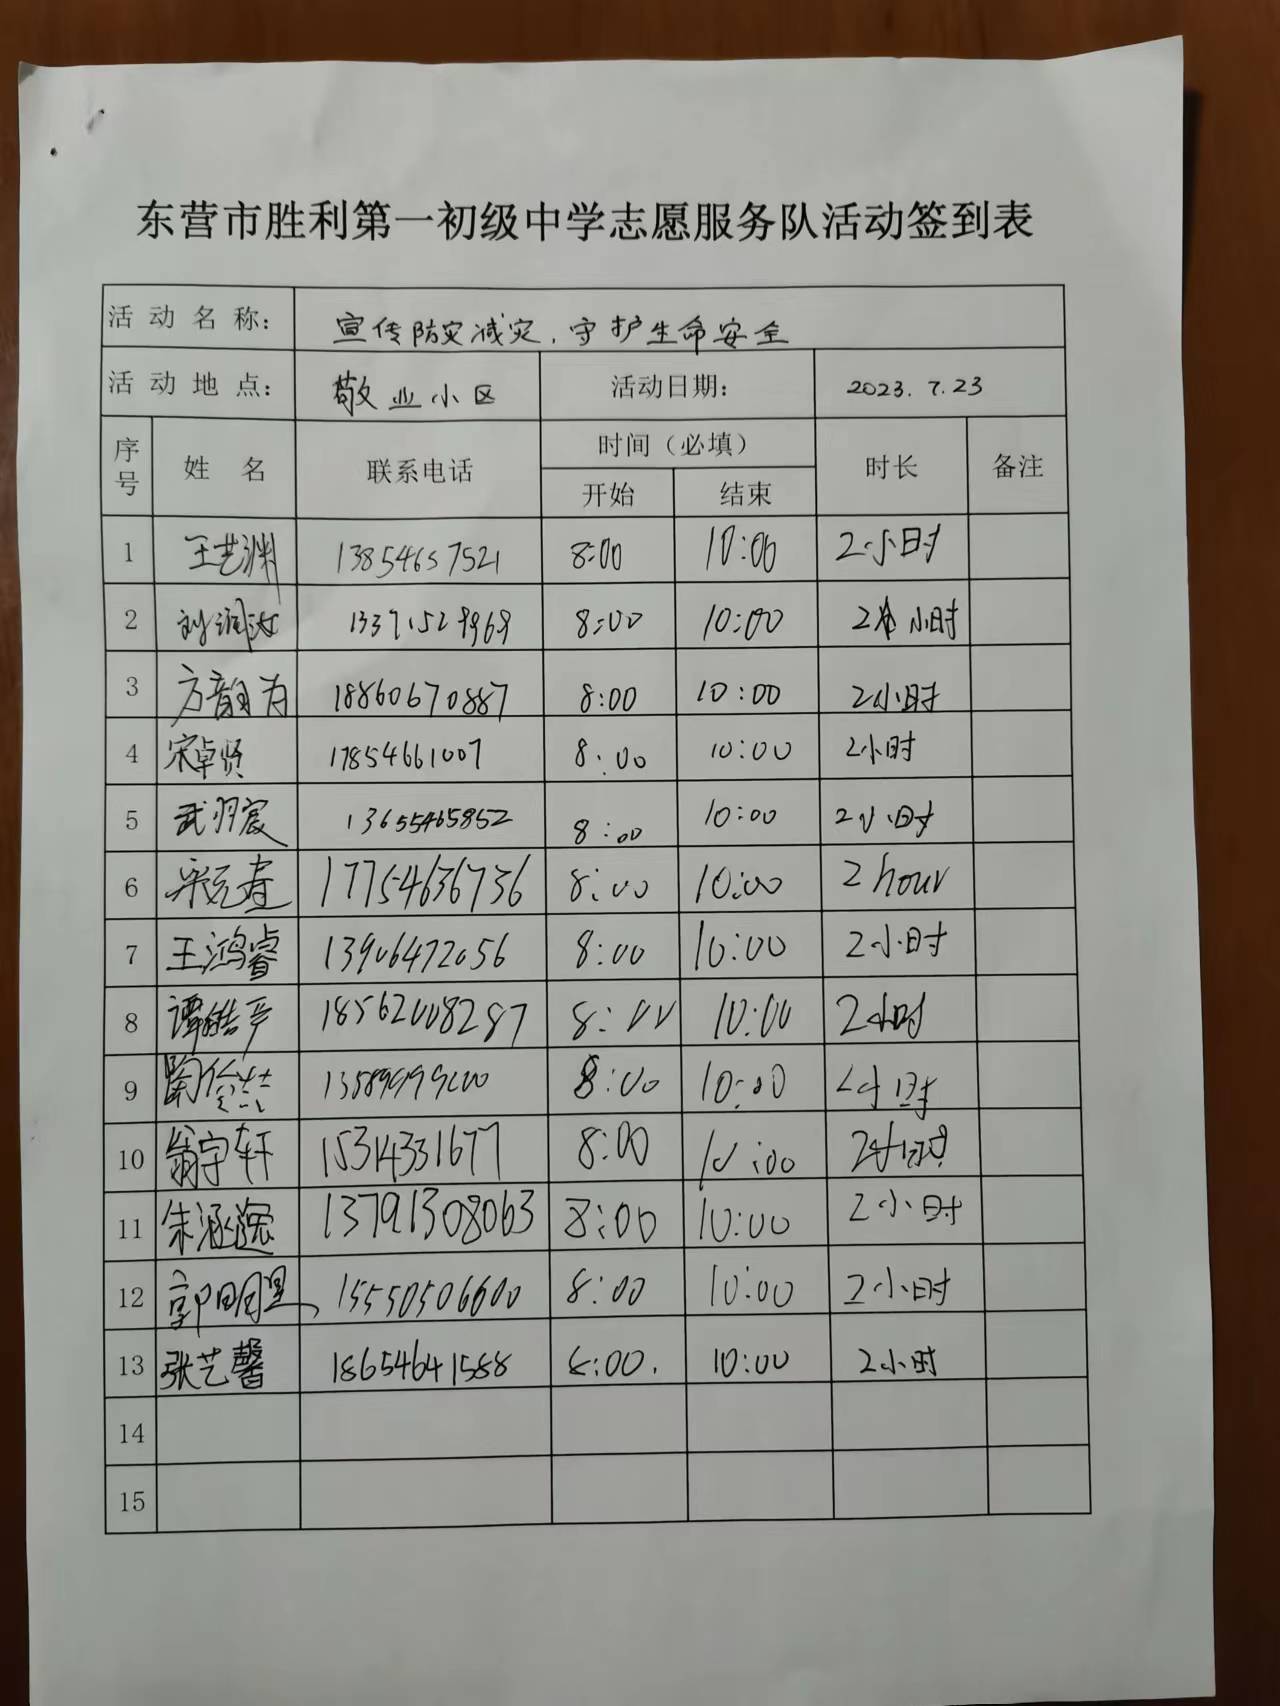 东营市胜利第一初级中学志愿服务队活动签到表
活动名称: 宣传防灾减灾,守护生命安全
活动地点: 敬业小区 活动日期: 2023.7.23
序号 姓名 联系电话 时间(必填) 时长 备注
开始 结束
1 王艺渊 13854657521 8:00 10:00 2小时
2 刘润汝 8:00 10:00 2小时
3 方韵为 18860670887 8:00 10:00 2小时
4 宋卓贤 17854661007 8:00 10:00 2小时
5 武羽宸 13655465852 8:00 10:00 2小时
6 17754636736 8:00 10:00 2 hour
7 王鸿睿 13906472056 8:00 10:00 2小时
8 谭皓严 18562008287 8:00 10:00 2小时
9 8:00 10:00
10 翁宇轩 15314331677 8:00 10:00 2小时
11 朱涵逸 13791308063 8:00 10:00 2小时
12 15550506600 8:00 10:00 2小时
13 张艺馨 18654641588 8:00. 10:00 2小时
14
15